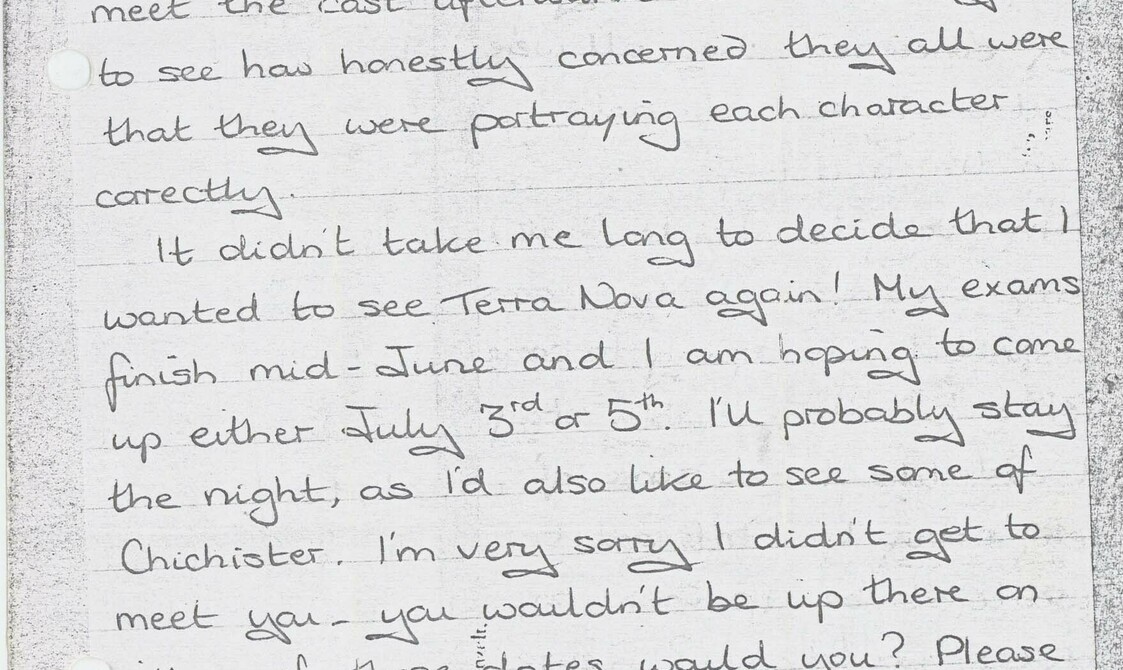 meet the cast
to see how honestly concerned they all were
that they were portraying each character
correctly.
It didn't take me long to decide that I
wanted to see Terra Nova again! My exams
finish mid-June and I am hoping to come
up either July 3rd or 5th. I'll probably stay
the night, as I'd also like to see some of
Chichister. I'm very sorry I didn't get to
meet you - you wouldn't be up there on
dates would you? Please